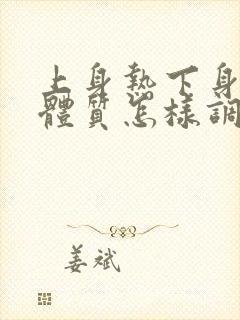 上身熱下身
體質怎樣調
姜斌